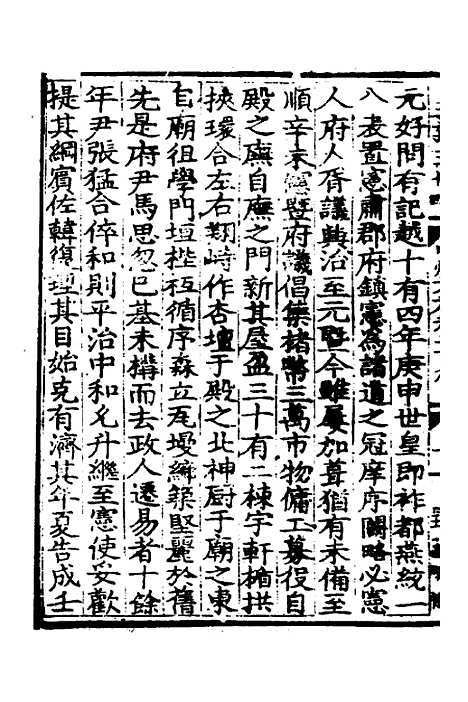 元好問有記越十有四年庚申世皇即祚都燕統一
八表置憲肅郡府鎮憲為諸道之冠庠序闕略必憲
人府人胥議興治至元曁今雖屢加葺猶有未備至
順辛未憲曁府議倡集楮幣三萬市物傭工募役自
殿之廡自廡之門新其屋盈三十有二棟宇軒楯拱
挾環合左右翔峙作杏壇于殿之北神厨于廟之東
自廟徂學門垣陛桓循序森立瓦墁締築堅麗於舊
先是府尹馬思忽已基未構而去政人遷易者十餘
年尹張猛合倅和則平治中和允升繼至憲使妥歡
提其綱賓佐韓復理其目始克有濟其年夏告成壬